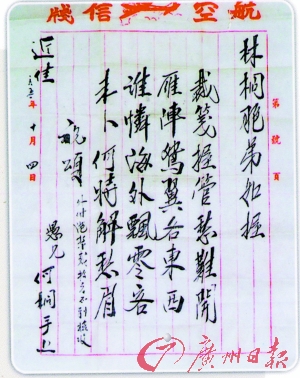 航空信牋
第 號 頁
林桐胞弟如握
裁箋握管愁難開
雁陣鴛翼各東西
誰憐海外飄零客
未卜何時解愁眉
外付港幣 到 收
頌
近佳
愚兄 何桐手上
年十月四日
廣州日報